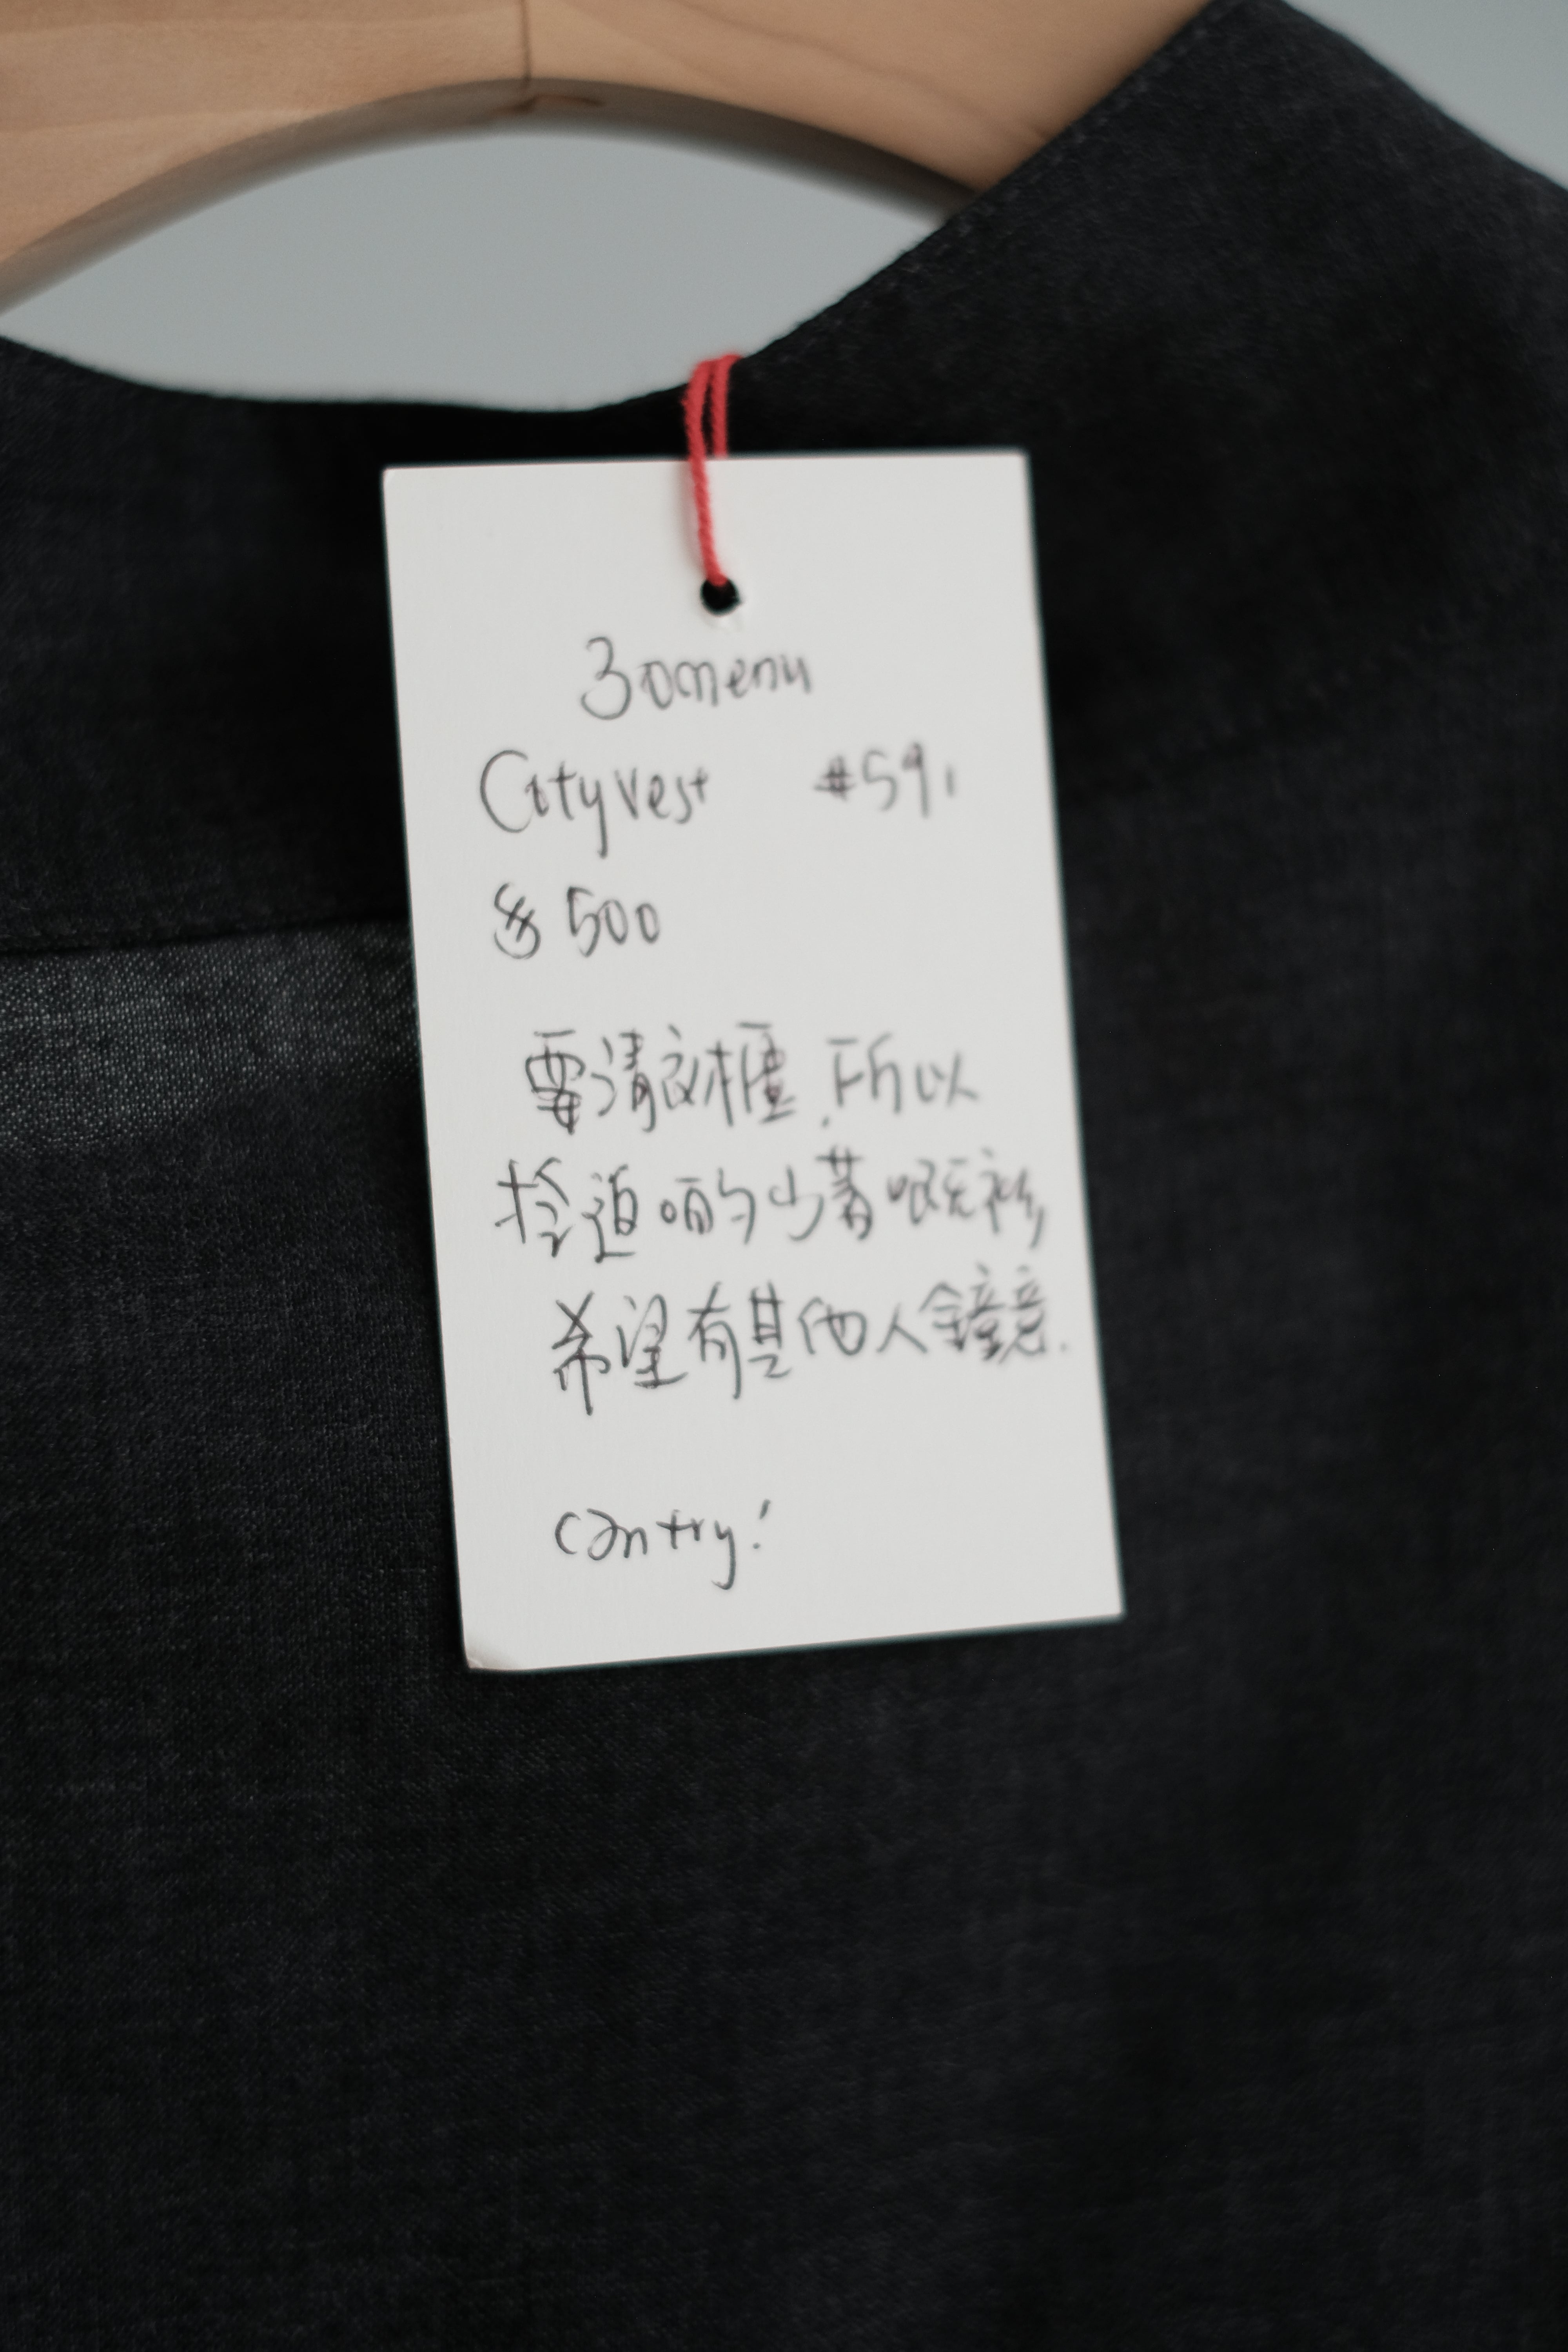 30menu
City vest #591
$ 500
要清衣櫃,所以
拎返啲少著嘅衫
希望有其他人鐘意.
can try!